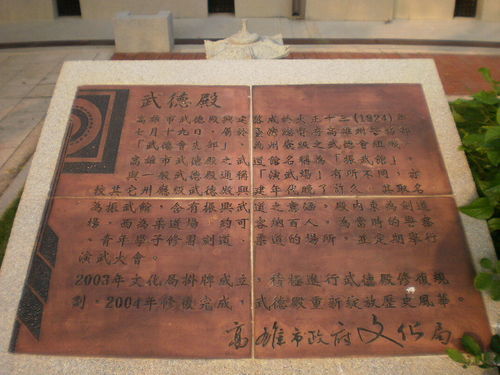 武德殿
高雄市武德殿興建落成於大正十三(1924)年
七月十九日，屬於臺灣總督府高雄州警務部
「武德會支部」，為州廳級之武德會組織。
高雄市武德殿之武道館名稱為「振武館」，
與一般武德殿通稱「演武場」有所不同，亦
較其它州廳級武德殿興建年代晚了許久，其取名
為振武館，含有振興武道之意涵，殿內東為劍道
場，西為柔道場，約可容納百人，為當時的警察
、青年學子修習劍道、柔道的場所，並定期舉行
演武大會。
2003年文化局掛牌成立，積極進行武德殿修復規
劃，2004年修復完成，武德殿重新綻放歷史風華。
高雄市政府文化局